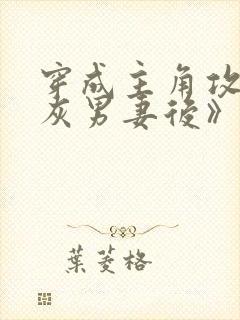 穿成主角攻
灰男妻後》
葉菱格